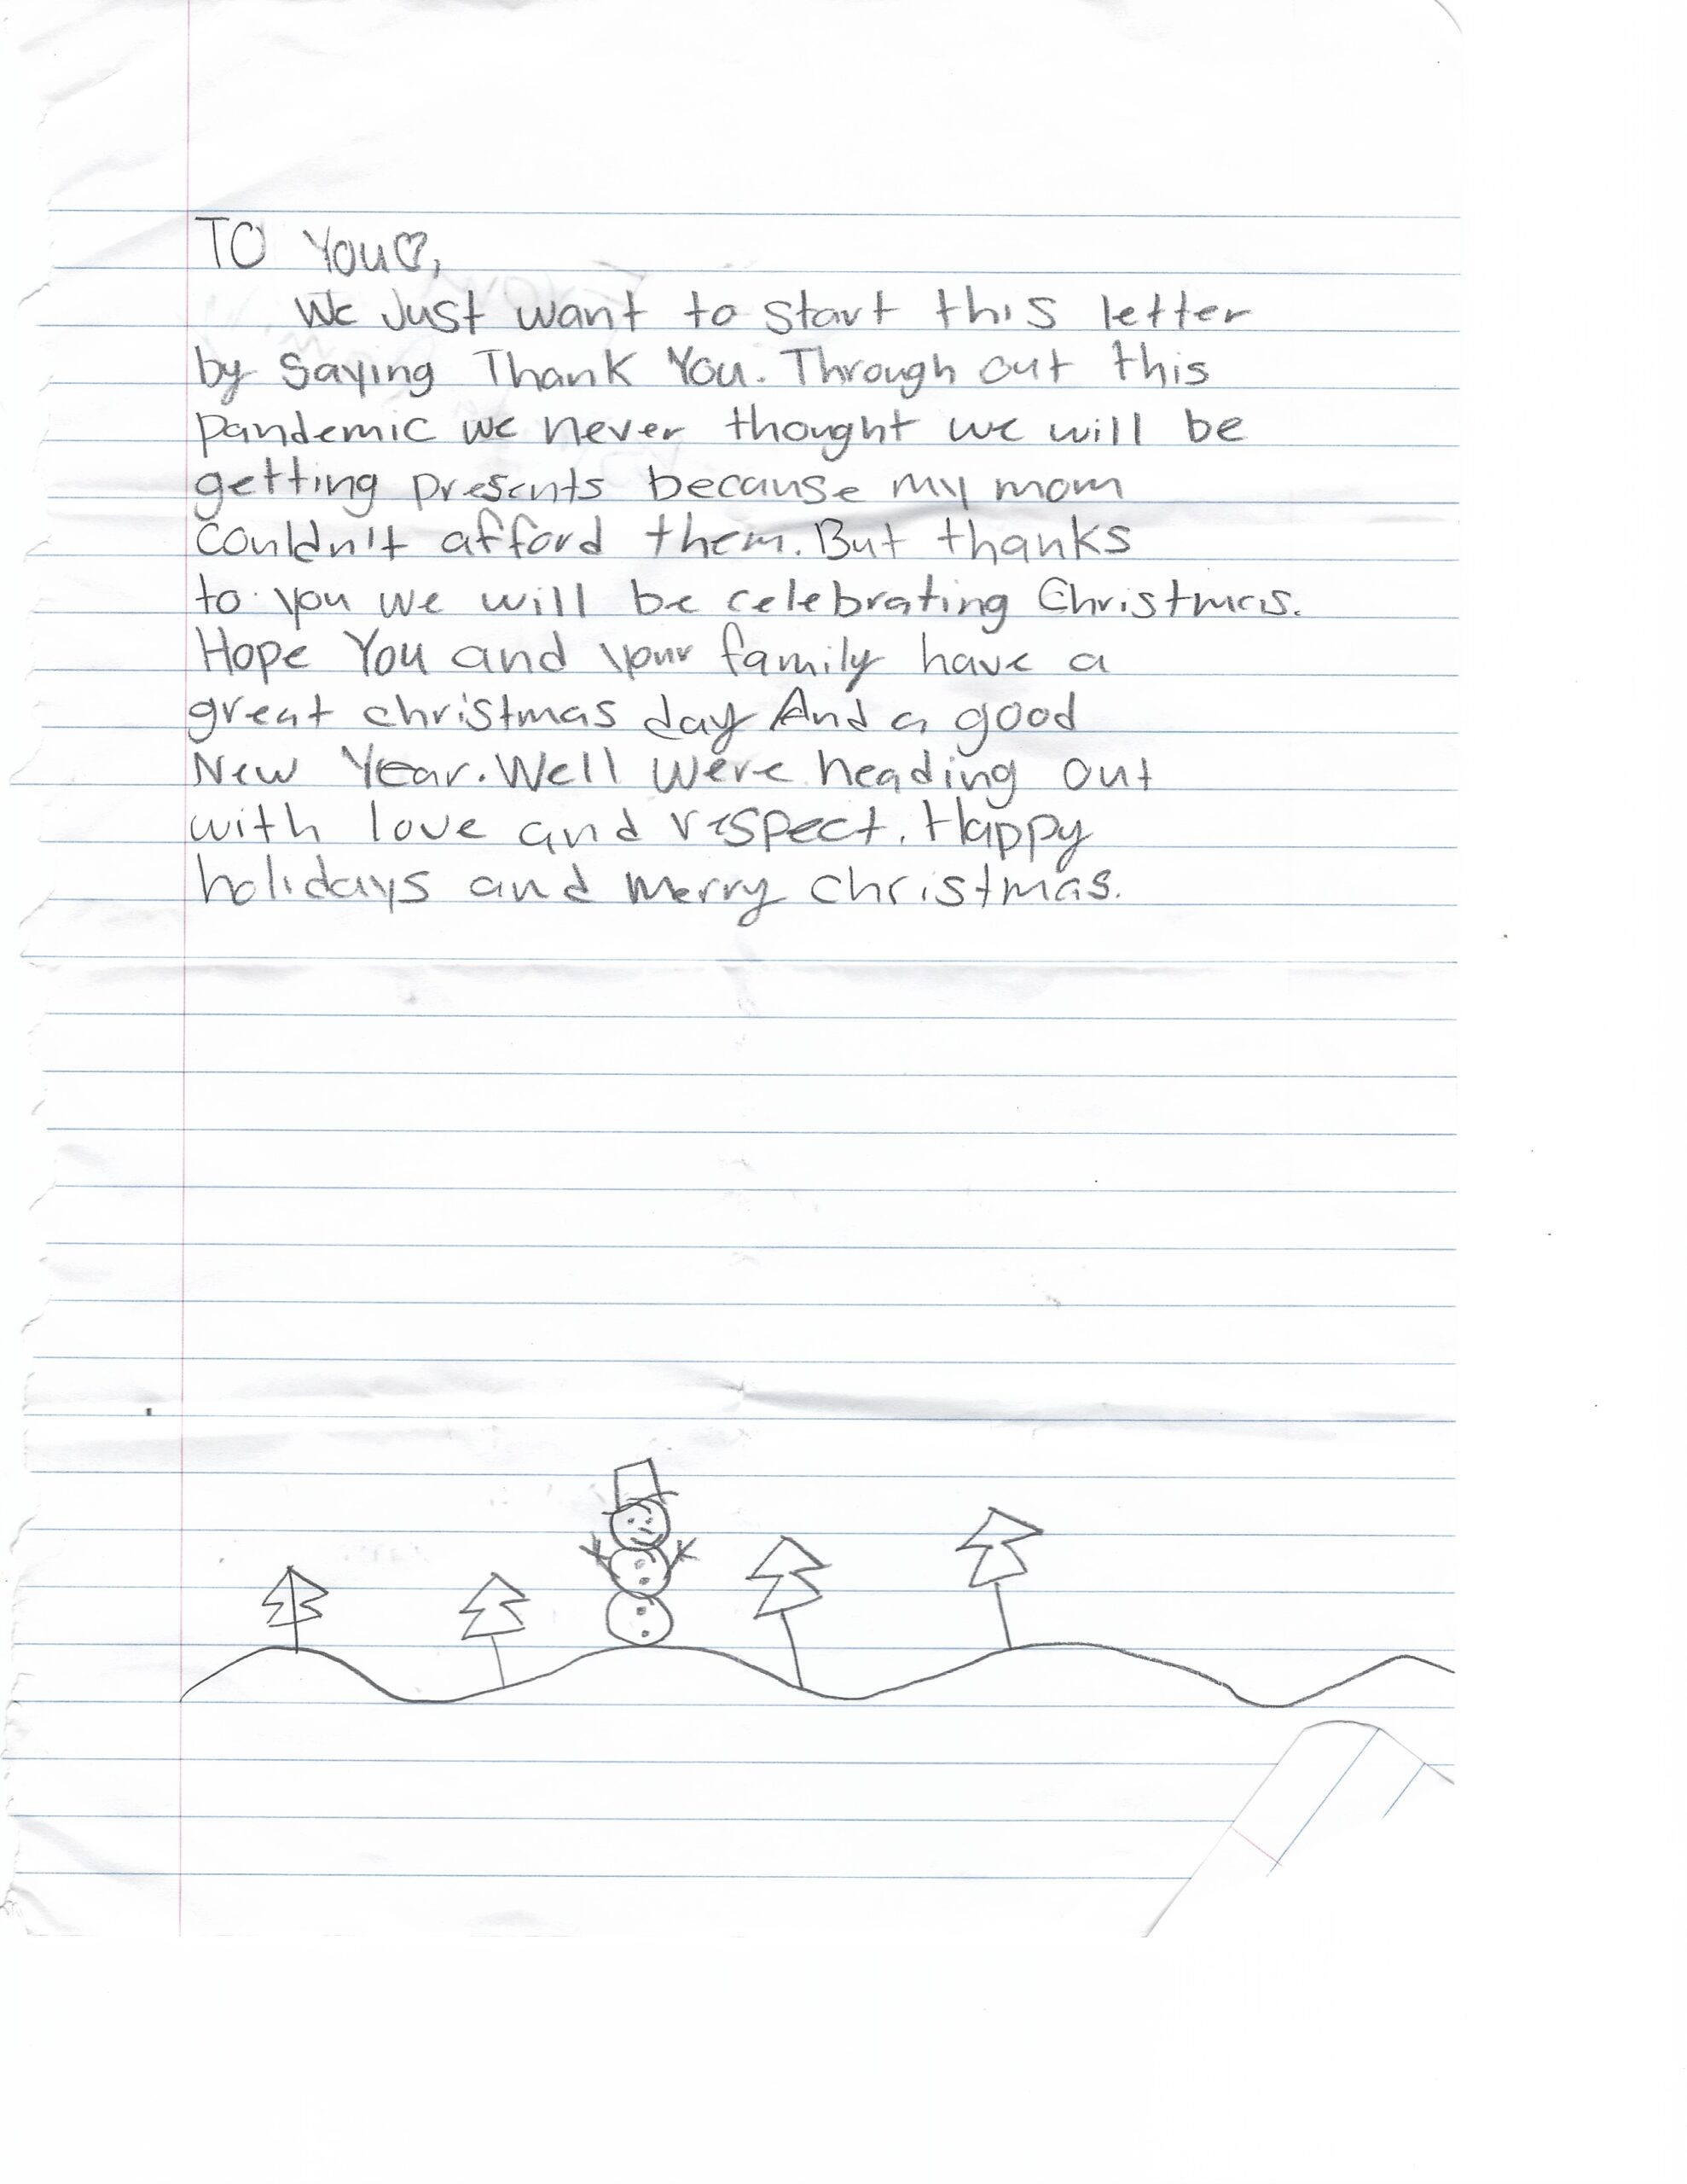 TO You♡,
We Just want to start this letter
by Saying Thank You. Through out this
pandemic we never thought we will be
getting presents because my mom
couldn't afford them. But thanks
to you we will be celebrating Christmas.
Hope You and your family have a
great christmas day And a good
New Year. Well We're heading out
with love and respect. Happy
holidays and merry christmas.